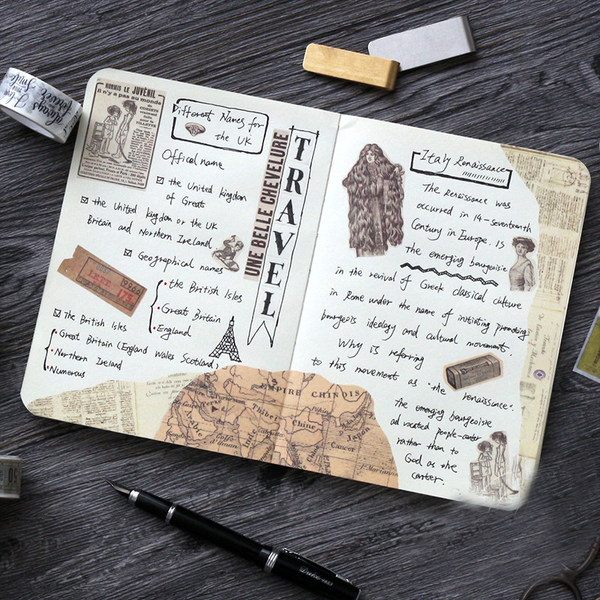 BURNIS LE JUVÉNIL
il n'y a pas au monde
Different Names for
the UK
Offical name
the United kingdom
of Great
the United kingdom or the UK
Britain and Northern Ireland
Geographical names
the British Isles
Great Britain
England
The British Isles
Great Britain (England Wales Scotland,
Northern Ireland
Numerous
UNE BELLE CHEVELURE
TRAVEL
EMPIRE CHINOIS
Thibet
Chine
Japon
Canton
Arabie
Italy Renaissance
The Renaissance was
occurred in 14-seventeenth
Century in Europe. IS
the emerging bourgeoisie
in the revival of Greek classical culture
in Rome under the name of initiating promotings
bourgeois ideology and cultural movements.
Why is referring
to this movement as "the renaissance".
the emerging bourgeoisie
ad vocated people-center
rather than to
God as the
center.